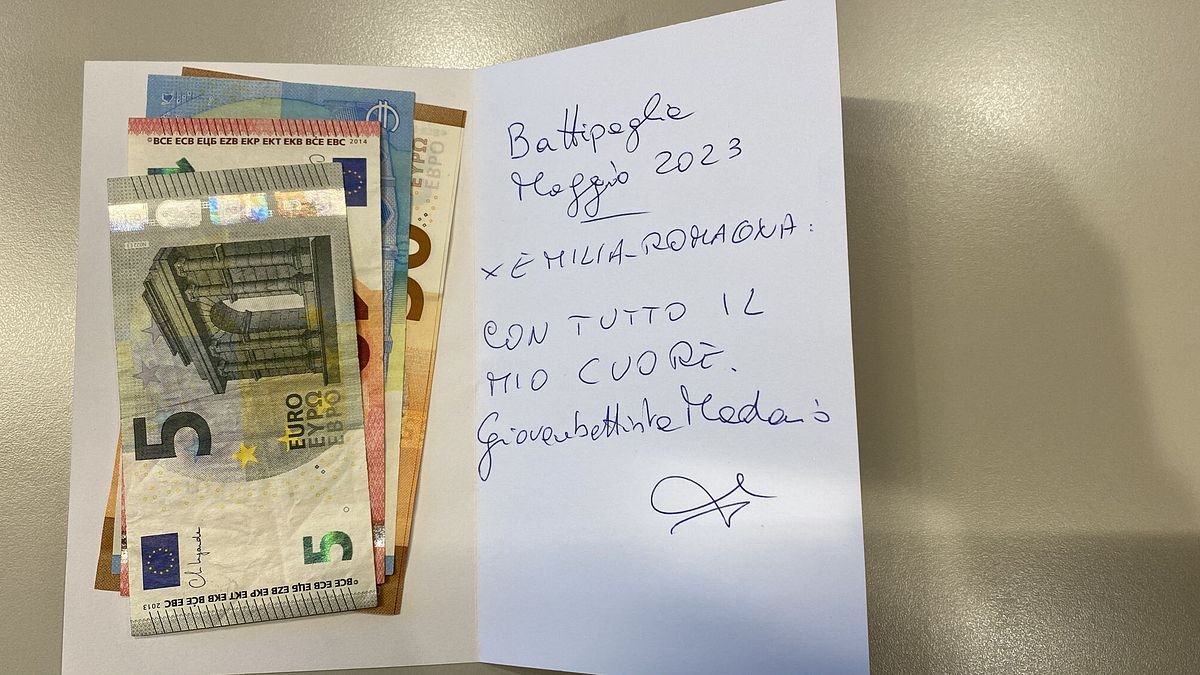 BCE ECB ЕЦБ EZB EKP EKT EKB BĊE EBC 2014
5
EURO
ΕΥΡΩ
ЕВРО
ΕΥΡΩ
ЕВРО
50
5
BCE ECB ЕЦБ EZB EKP EKT EKB BĊE EBC 2013
Battipaglia
Maggio 2023
X EMILIA-ROMAGNA:
CON TUTTO IL
MIO CUORE.
Giovanbattista